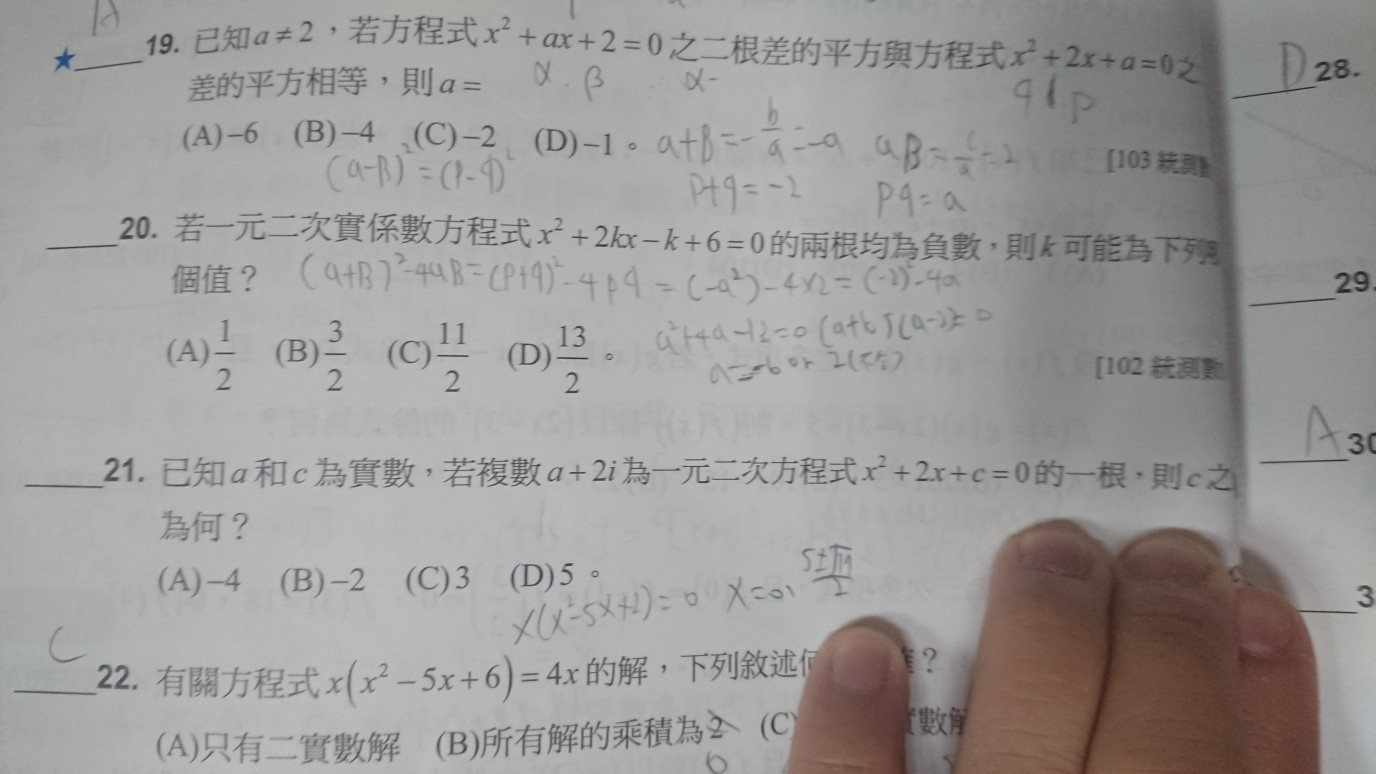 A
★ 19. 已知a≠2，若方程式x²+ax+2=0之二根差的平方與方程式x²+2x+a=0之
差的平方相等，則a=
α . β α-
q p
(A)−6 (B)−4 (C)−2 (D)−1。
a+β=-b/a=-a aβ=c/a=2
[103 統測
(a-β)²=(p-q)²
p+q=-2 pq=a
20. 若一元二次實係數方程式x²+2kx−k+6=0的兩根均為負數，則k可能為下列
個值？
(a+β)²-4aβ=(p+q)²-4pq=(-a²)-4x2=(-2)²-4a
a²+4a-12=0 (a+6)(a-2)=0
a=-6 or 2
(A)1/2 (B)3/2 (C)11/2 (D)13/2。
[102 統測
21. 已知a和c為實數，若複數a+2i為一元二次方程式x²+2x+c=0的一根，則c之
為何？
(A)−4 (B)−2 (C)3 (D)5。
x(x²-5x+2)=0 x=0,
C
22. 有關方程式x(x²−5x+6)=4x的解，下列敘述
？
(A)只有二實數解 (B)所有解的乘積為2 (C)
數解
0
D 28.
29.
A 30
3